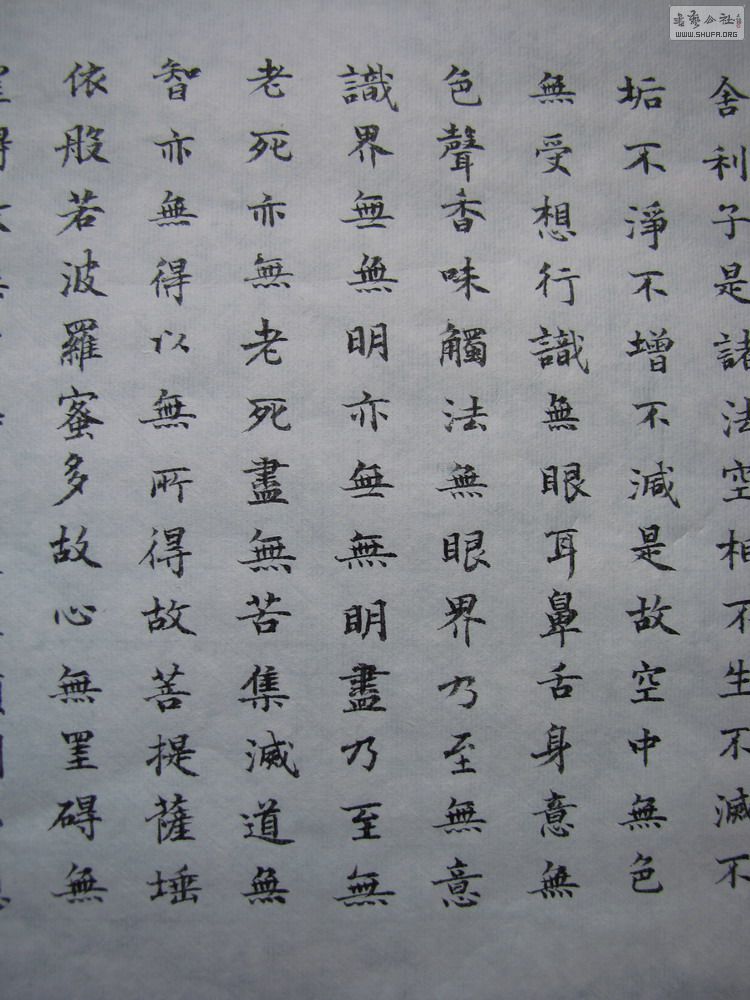 舍利子是諸法空相不生不滅不
垢不淨不增不減是故空中無色
無受想行識無眼耳鼻舌身意無
色聲香味觸法無眼界乃至無意
識界無無明亦無無明盡乃至無
老死亦無老死盡無苦集滅道無
智亦無得以無所得故菩提薩埵
依般若波羅蜜多故心無罣碍無
WWW.SHUFA.ORG